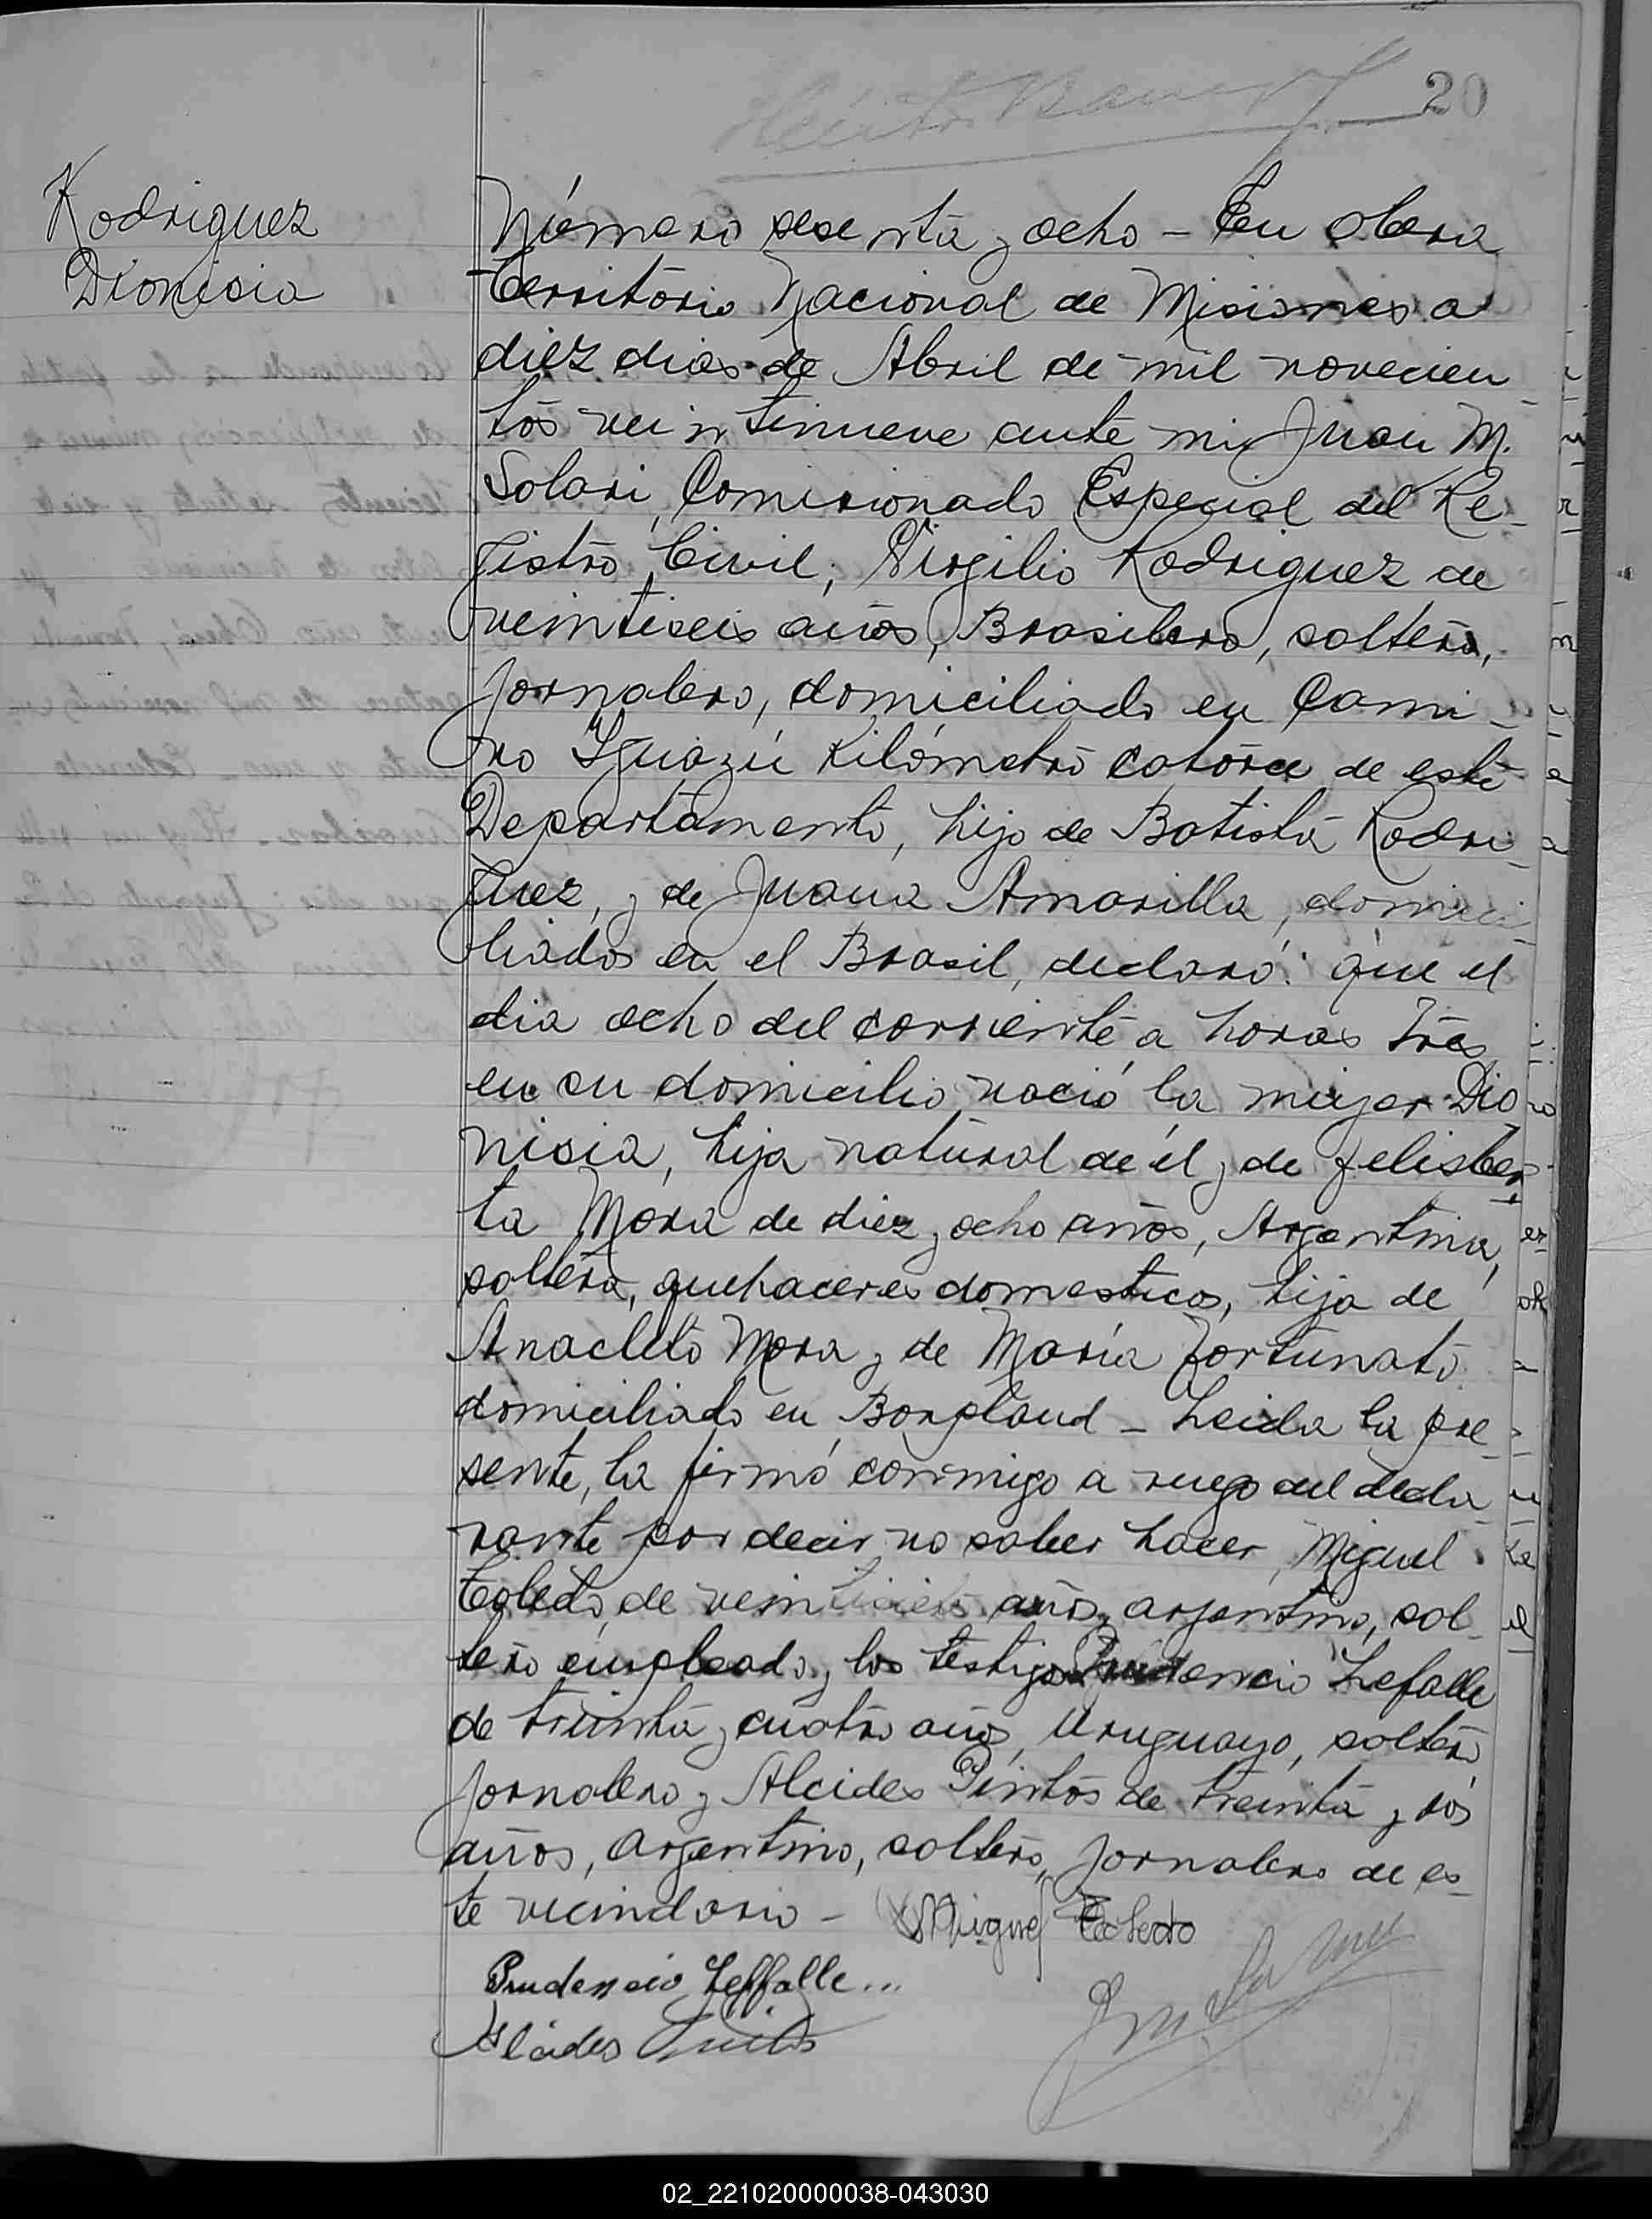 20
Rodriguez
Dionisia
Número sesenta y ocho - En Obera
Territorio Nacional de Misiones a
diez dias de Abril de mil novecien
tos veintinueve ante mi Juan M.
Solari, Comisionado Especial del Re-
gistro Civil, Virgilio Rodriguez de
veintiseis años, Brasilero, soltero,
jornalero, domiciliado en Cami-
no Yguazú Kilómetro catorce de este
Departamento, hijo de Batista Rodri-
guez, y de Juana Amarilla, domici-
liados en el Brasil, declaró: que el
dia ocho del corriente a horas tres
en su domicilio nació la mujer Dio
nisia, hija natural de él y de Felisber-
ta Mora de diez y ocho años, Argentina,
soltera, quehaceres domesticos, hija de
Anacleto Mora y de María Fortunato
domiciliado en Bonpland - Leida la pre-
sente, la firmó conmigo a ruego del decla-
rante por decir no saber hacer, Miguel
Toledo, de años, argentino, sol-
tero empleado y los testigos Prudencio Lefalle
de treinta y cuatro años, Uruguayo, soltero
jornalero y Alcides Pintos de treinta y dos
años, argentino, soltero, jornalero de es-
te vecindario - Miguel Toledo
Prudencio Leffalle...
Alcides Pintos
02_221020000038-043030